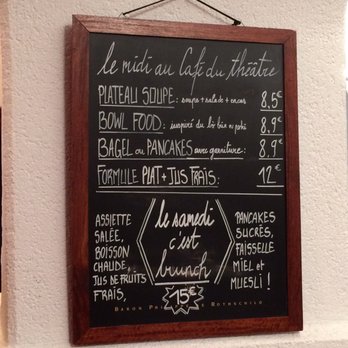 le midi au Café du théâtre
PLATEAU SOUPE: soupe + salade + encas 8,5€
BOWL FOOD: inspiré du lo bùn ou poké 8,9€
BAGEL ou PANCAKES avec garniture: 8,9€
FORMULE PLAT + JUS FRAIS: 12€
ASSIETTE
SALÉE,
BOISSON
CHAUDE,
JUS DE FRUITS
FRAIS,
le samedi
c'est
brunch
15€
PANCAKES
SUCRÉS,
FAISSELLE
MIEL et
MUESLI !
BARON ROTHSCHILD